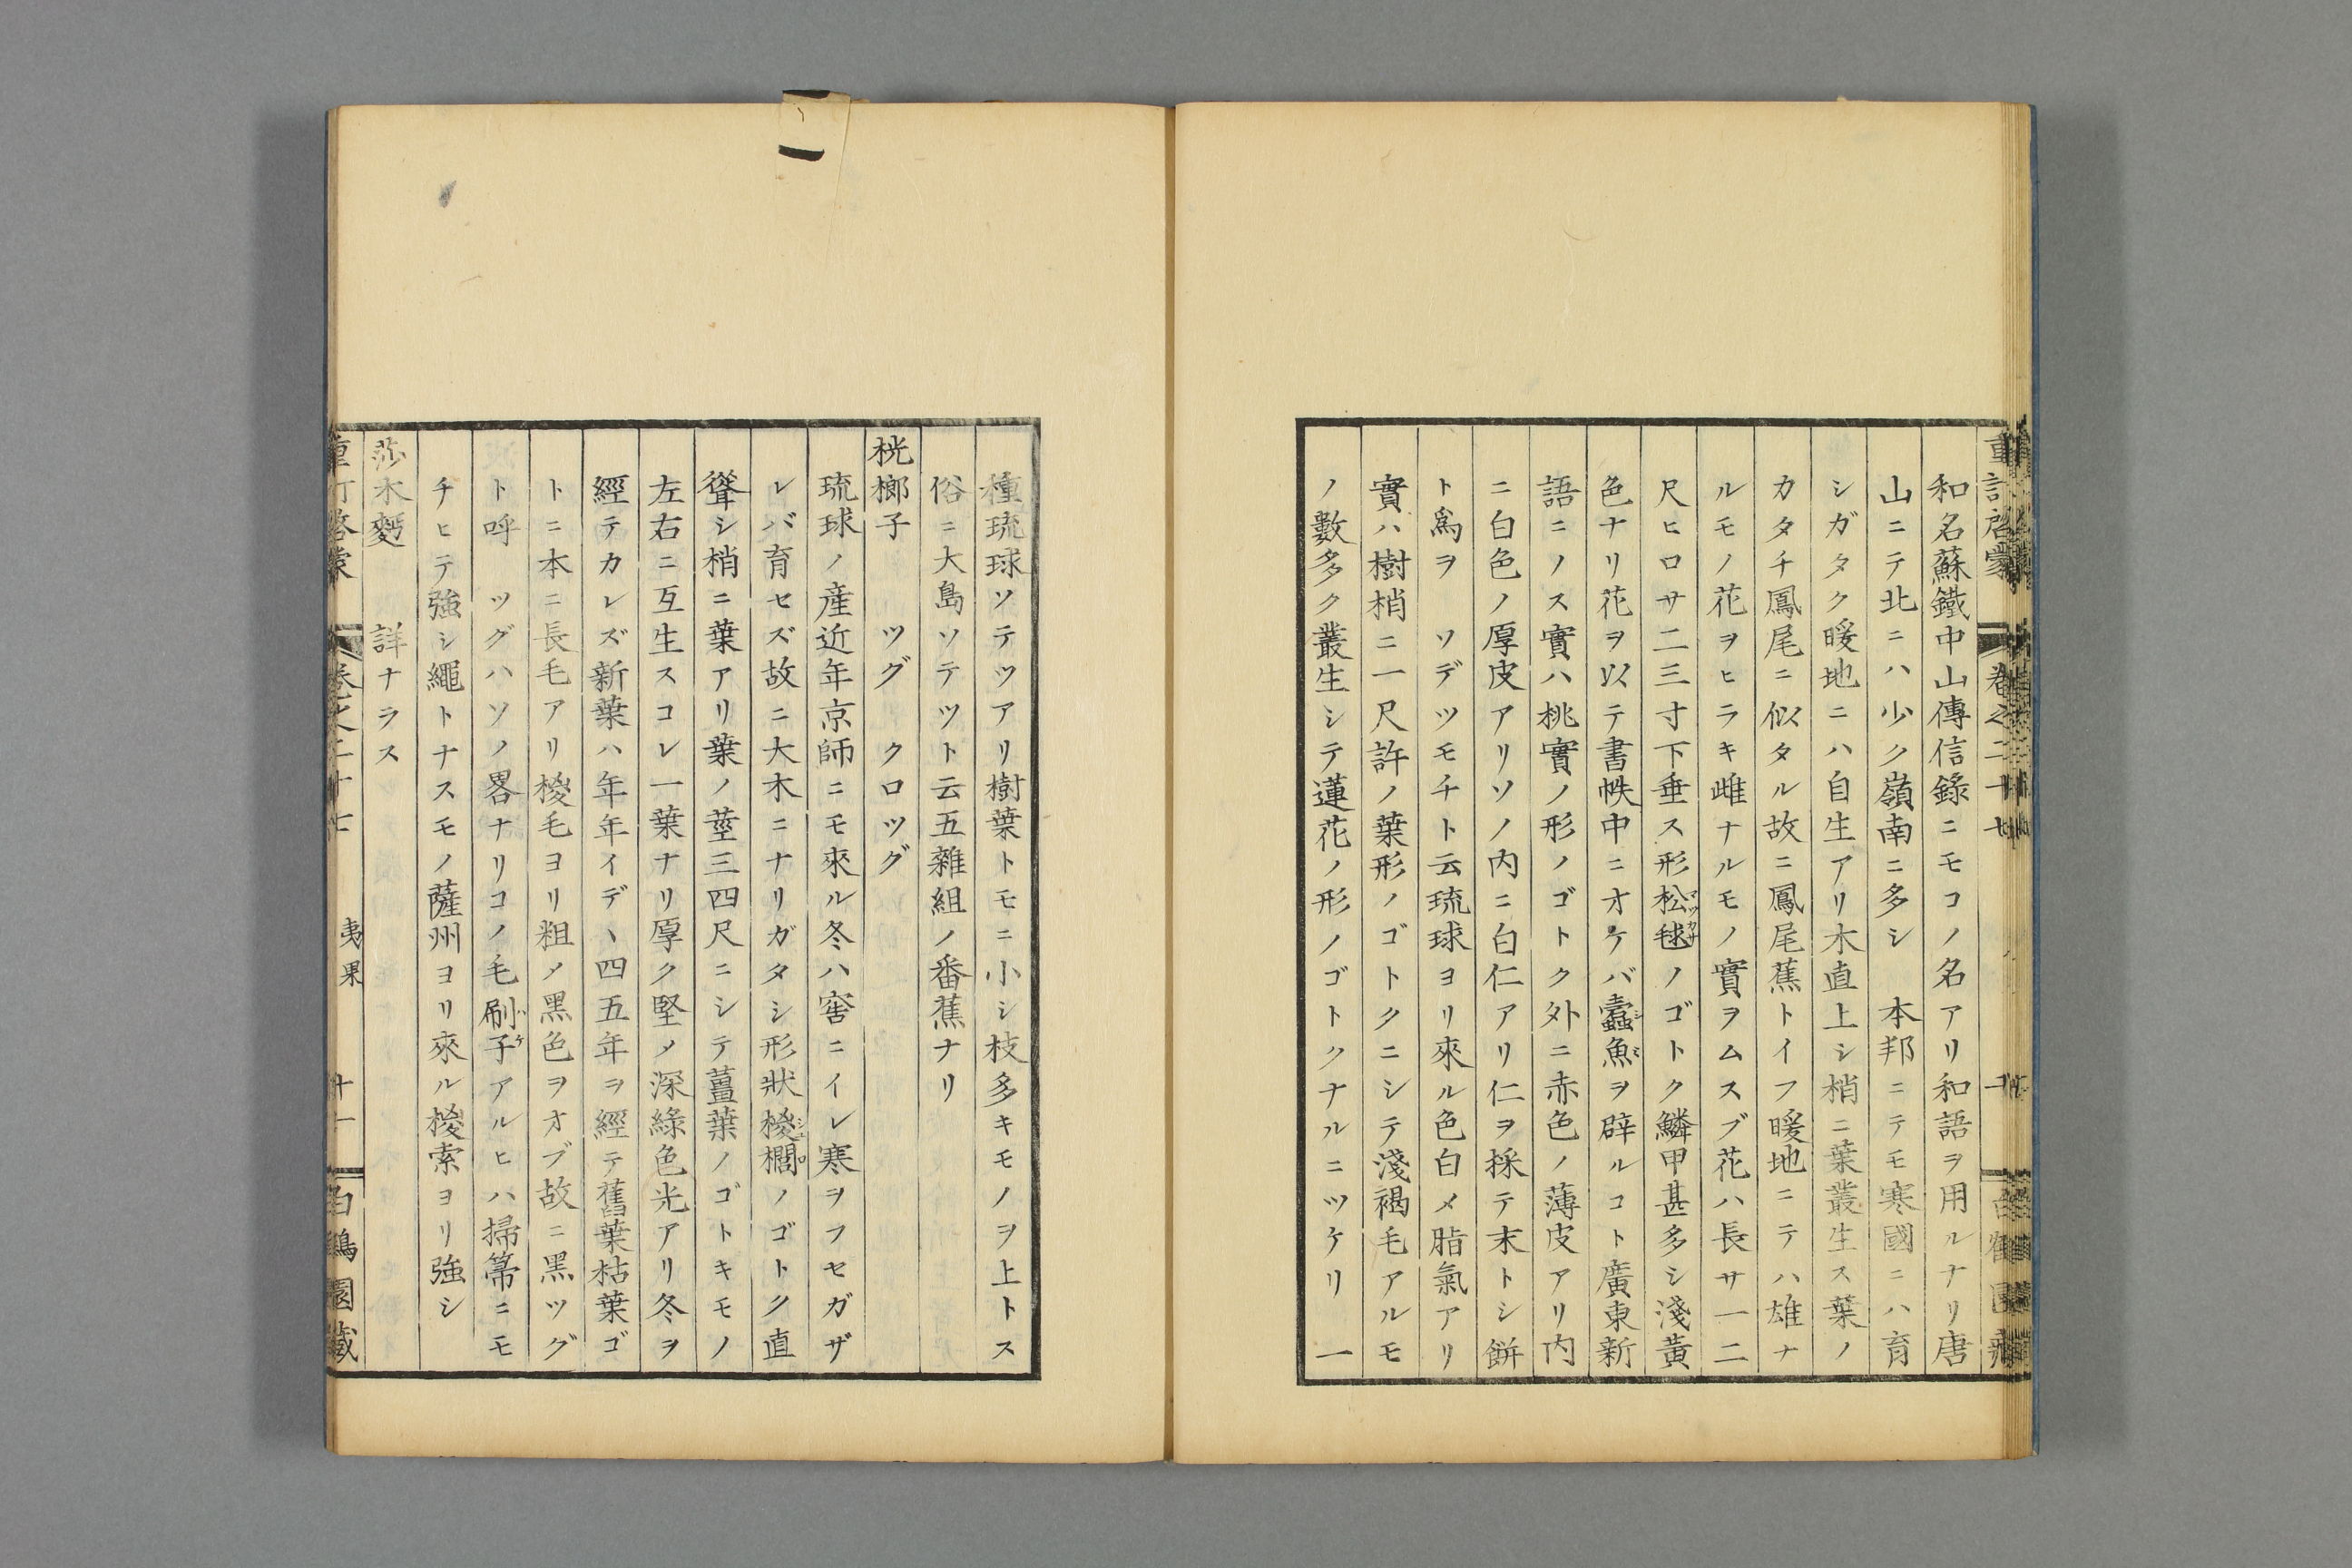 和名蘇鐵中山傳信錄ニモコノ名アリ和語ヲ用ルナリ唐
山ニテ北ニハ少ク嶺南ニ多シ　本邦ニテモ寒國ニハ育
シガタク暖地ニハ自生アリ木直上シ梢ニ葉叢生ス葉ノ
カタチ鳳尾ニ似タル故ニ鳳尾蕉トイフ暖地ニテハ雄ナ
ルモノ花ヲヒラキ雌ナルモノ實ヲムスブ花ハ長サ一二
尺ヒロサ二三寸下垂ス形松毬ノゴトク鱗甲甚多シ淺黃
色ナリ花ヲ以テ書帙中ニオケバ蠹魚ヲ辟ルコト廣東新
語ニノス實ハ桃實ノ形ノゴトク外ニ赤色ノ薄皮アリ内
ニ白色ノ厚皮アリソノ内ニ白仁アリ仁ヲ採テ末トシ餅
ト爲ヲ　ソデツモチト云琉球ヨリ來ル色白メ脂氣アリ
實ハ樹梢ニ一尺許ノ葉形ノゴトクニシテ淺褐毛アルモ
ノ數多ク叢生シテ蓮花ノ形ノゴトクナルニツケリ　一
種琉球ソテツアリ樹葉トモニ小シ枝多キモノヲ上トス
俗ニ大島ソテツト云五雜組ノ番蕉ナリ
桄榔子　　ツグ　クロツグ
琉球ノ産近年京師ニモ來ル冬ハ窖ニイレ寒ヲフセガザ
レバ育セズ故ニ大木ニナリガタシ形狀椶櫚ノゴトク直
聳シ梢ニ葉アリ葉ノ莖三四尺ニシテ薑葉ノゴトキモノ
左右ニ互生スコレ一葉ナリ厚ク堅メ深綠色光アリ冬ヲ
經テカレズ新葉ハ年年イデヽ四五年ヲ經テ舊葉枯葉ゴ
トニ本ニ長毛アリ椶毛ヨリ粗メ黑色ヲオブ故ニ黑ツグ
ト呼　ツグハソノ畧ナリコノ毛刷子アルヒハ掃箒ニモ
チヒテ強シ繩トナスモノ薩州ヨリ來ル椶索ヨリ強シ
莎木麪　　詳ナラス
重訂啓蒙　卷之二十七　夷果　十一　白鶴園藏